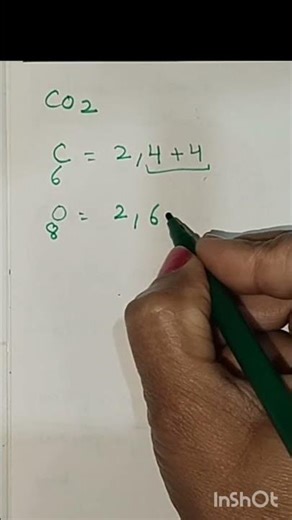 CO2
C = 2, 4 + 4
6
O = 2, 6
8
InShOt